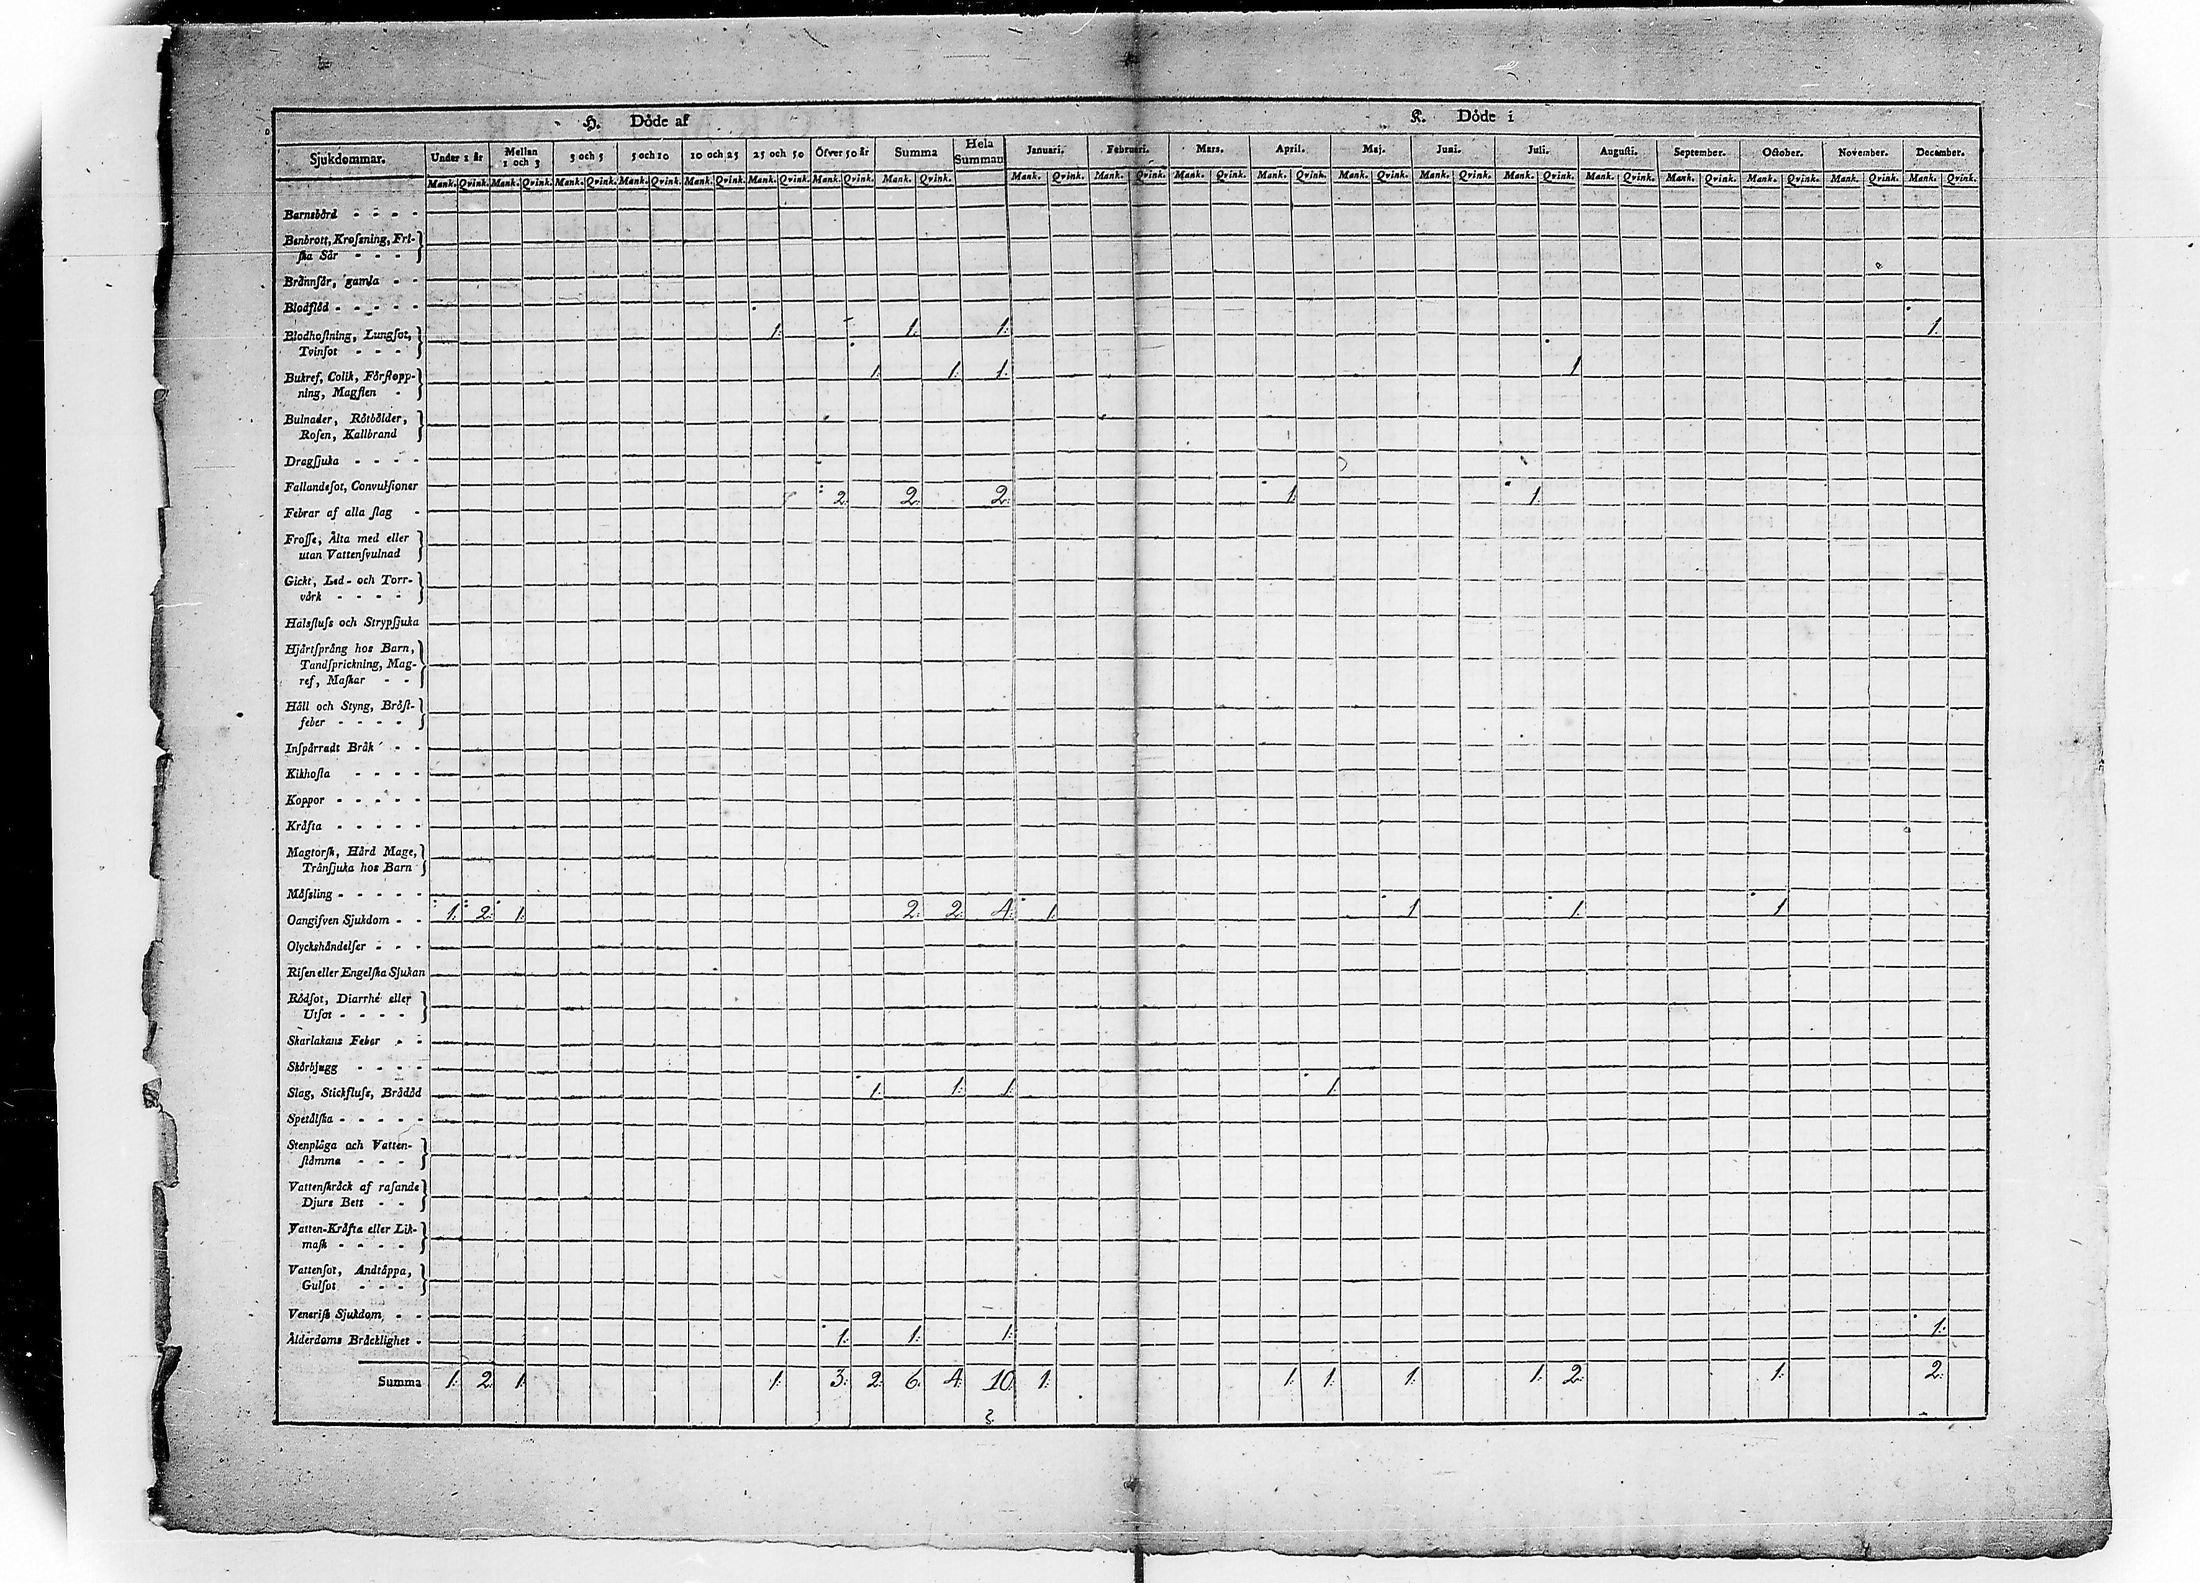 H. Döde af K. Döde i
Sjukdommar. Under 1 år Mellan 1 och 3 3 och 5 5 och 10 10 och 25 25 och 50 Öfver 50 år Summa Hela Summan Januari. Februari. Mars. April. Maj. Juni. Juli. Augusti. September. October. November. December.
Mank. Qvink. Mank. Qvink. Mank. Qvink. Mank. Qvink. Mank. Qvink. Mank. Qvink. Mank. Qvink. Mank. Qvink. Mank. Qvink. Mank. Qvink. Mank. Qvink. Mank. Qvink. Mank. Qvink. Mank. Qvink. Mank. Qvink. Mank. Qvink. Mank. Qvink. Mank. Qvink. Mank. Qvink. Mank. Qvink.
Barnsbörd - - - -
Benbrott, Kroſsning, Fri-
ſka Sår - - -
Brännſår, gamla - -
Blodflöd - - - - -
Blodhoſtning, Lungſot, 1: 1: 1: 1:
Tvinſot - - -
Bukref, Colik, Förſtopp- 1: 1: 1: 1
ning, Magſten -
Bulnader, Rötbölder,
Roſen, Kallbrand
Dragſjuka - - - -
Fallandeſot, Convulſioner
Febrar af alla ſlag - 2: 2: 2: 1 1:
Froſſe, Älta med eller
utan Vattenſvulnad
Gickt, Led- och Torr-
värk - - - -
Halsfluſs och Strypſjuka
Hjärtſprång hos Barn,
Tandſprickning, Mag-
ref, Maſkar - -
Håll och Styng, Bröſt-
feber - - - -
Inſpärradt Bråk - -
Kikhoſta - - - -
Koppor - - - - -
Kräfta - - - - -
Magtorſk, Hård Mage,
Tränſjuka hos Barn
Mäſsling - - - - -
Oangifven Sjukdom - - 1: 2: 1: 2: 2: 4: 1: 1 1: 1
Olyckshändelſer - - -
Riſen eller Engelſka Sjukan
Rödſot, Diarrhé eller
Utſot - - - -
Skarlakans Feber - -
Skörbjugg - - - -
Slag, Stickfluſs, Brådöd 1: 1: 1: 1:
Spetälſka - - - - -
Stenplåga och Vatten-
ſtämma - - -
Vattenſkräck af raſande
Djurs Bett - -
Vatten-Kräfta eller Lik-
maſk - - - -
Vattenſot, Andtäppa,
Gulſot - - -
Veneriſk Sjukdom - -
Ålderdoms Bräcklighet - 1: 1: 1: 1:
Summa 1: 2: 1: 1: 3: 2: 6: 4: 10: 1: 1: 1: 1: 1: 2: 1: 2: